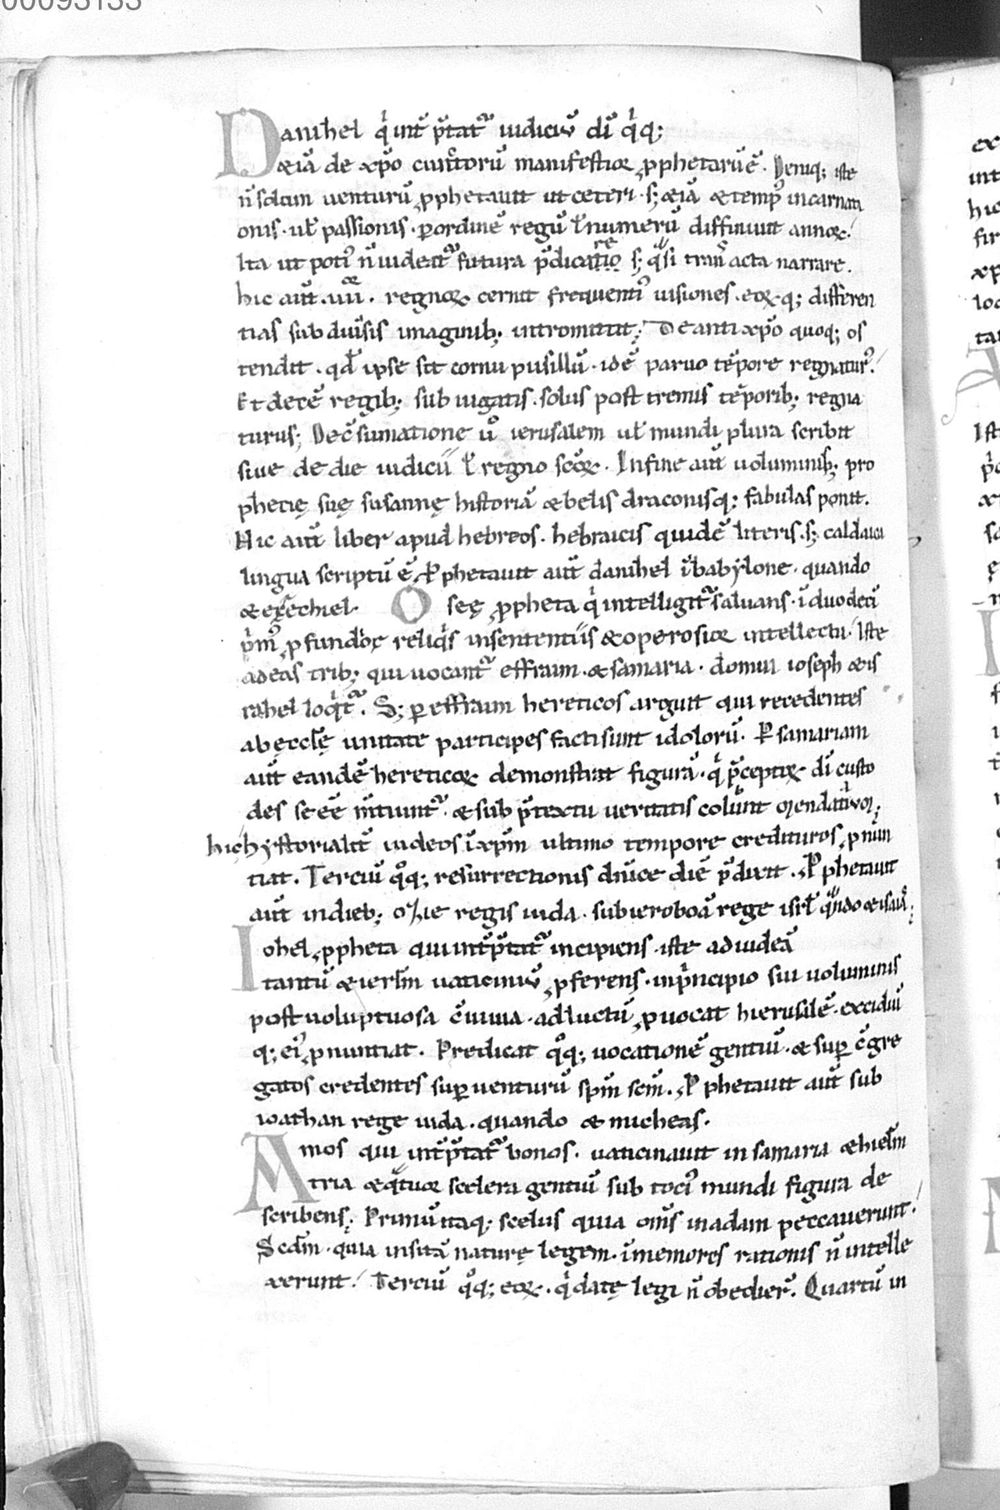 00093133
Danihel q̉ int̄ p̄tat᷑ iudiciū dī q̉q;
&iā de xp̄o cunctorū manifestioꝝ ꝓphetarū ē. Deniq; iste
n̄ solum venturū ꝓphetauit ut ceteri. s; &iā & temp᷒ incarnati
onis. ul̄ passionis. ꝑ ordinē regū ł numerū diffiniuit annoꝝ.
Ita ut poti᷒ n̄ uideat᷑ futura p̄dicare s; q̊si transacta narrare.
hic aūt .iiii. regnoꝝ cernit frequent᷒ uisiones. eoꝝq; differen
tias sub diu̓sis imaginib; intromittit; De antixp̄o quoq; os
tendit. qd̄ ipse sit cornu pusillū. idē paruo tēpore regnatur᷒.
Et decē regib; subiugatis. solus post tremis tēporib; regna
turus; De c̄sumatione ū ierusalem ul̄ mundi plura scribit
siue de die iudicii ł regno scōꝝ. In fine aūt uoluminis; pro
phetię suę susannę historiā & belis draconisq; fabulas ponit.
Hic aūt liber apud hebreos. hebraicis quidē literis. s; caldaica
lingua scriptū ē. Ꝓphetauit aūt danihel ī babylone. quando
& ezechiel. Oseę ꝓpheta q̉ intelligit᷑ saluans. ī duodeci
p̉m᷒ ꝓfundior reliq̉s in sententiis & operosioꝝ intellectu. Iste
ad eas trib; qui uocant᷑ effraim. & samaria. domui ioseph & is
rahel loq̉t᷑. S; ꝑ effraim hereticos arguit qui recedentes
ab ęcclę̄ unitate participes facti sunt idolorū. P samariam
aūt eandē hereticoꝝ demonstrat figurā. q̉ p̄ceptoꝝ dī custo
des se eē m̄tiunt᷑. & sub p̄textu veritatis colunt
hic hystorialit̄ iudeos ī xp̄m ultimo tempore credituros, ꝓnun
tiat. Terciū q̊q; resurrectionis dn̄ice diē p̄dixit. Ꝓphetauit
aūt in dieb; ozie regis iuda. sub ieroboā rege isrł q̊ndo & isaias.
Iohel, ꝓpheta qui int̄p̄tat᷑ incipiens. iste ad iudeā
tantū & ierłm vaticiniū, ꝓferens. in p̉ncipio sui uoluminis
post uoluptuosa c̄uiuia. ad luctū, ꝓuocat hierusalē. excidiū
q; ei᷒ ꝓnuntiat. Predicat q̊q; uocationē gentiū. & suꝑ c̄gre
gatos credentes suꝑ uenturū sp̄m scm̄. Ꝓphetauit aūt sub
ioathan rege iuda. quando & micheas.
Amos qui int̄p̄tat᷑ bonos. vaticinauit in samaria & hierłm
tria & q̊tuor scelera gentiū sub toci᷒ mundi figura de
scribens. Primū itaq; scelus quia om̄s in adam peccauerunt.
Scdm̄. quia insitā naturę legem. īmemores rationis n̄ intelle
xerunt. Terciū q̊q; eoꝝ. q̉ datę legi n̄ obedier̄. Quartū in